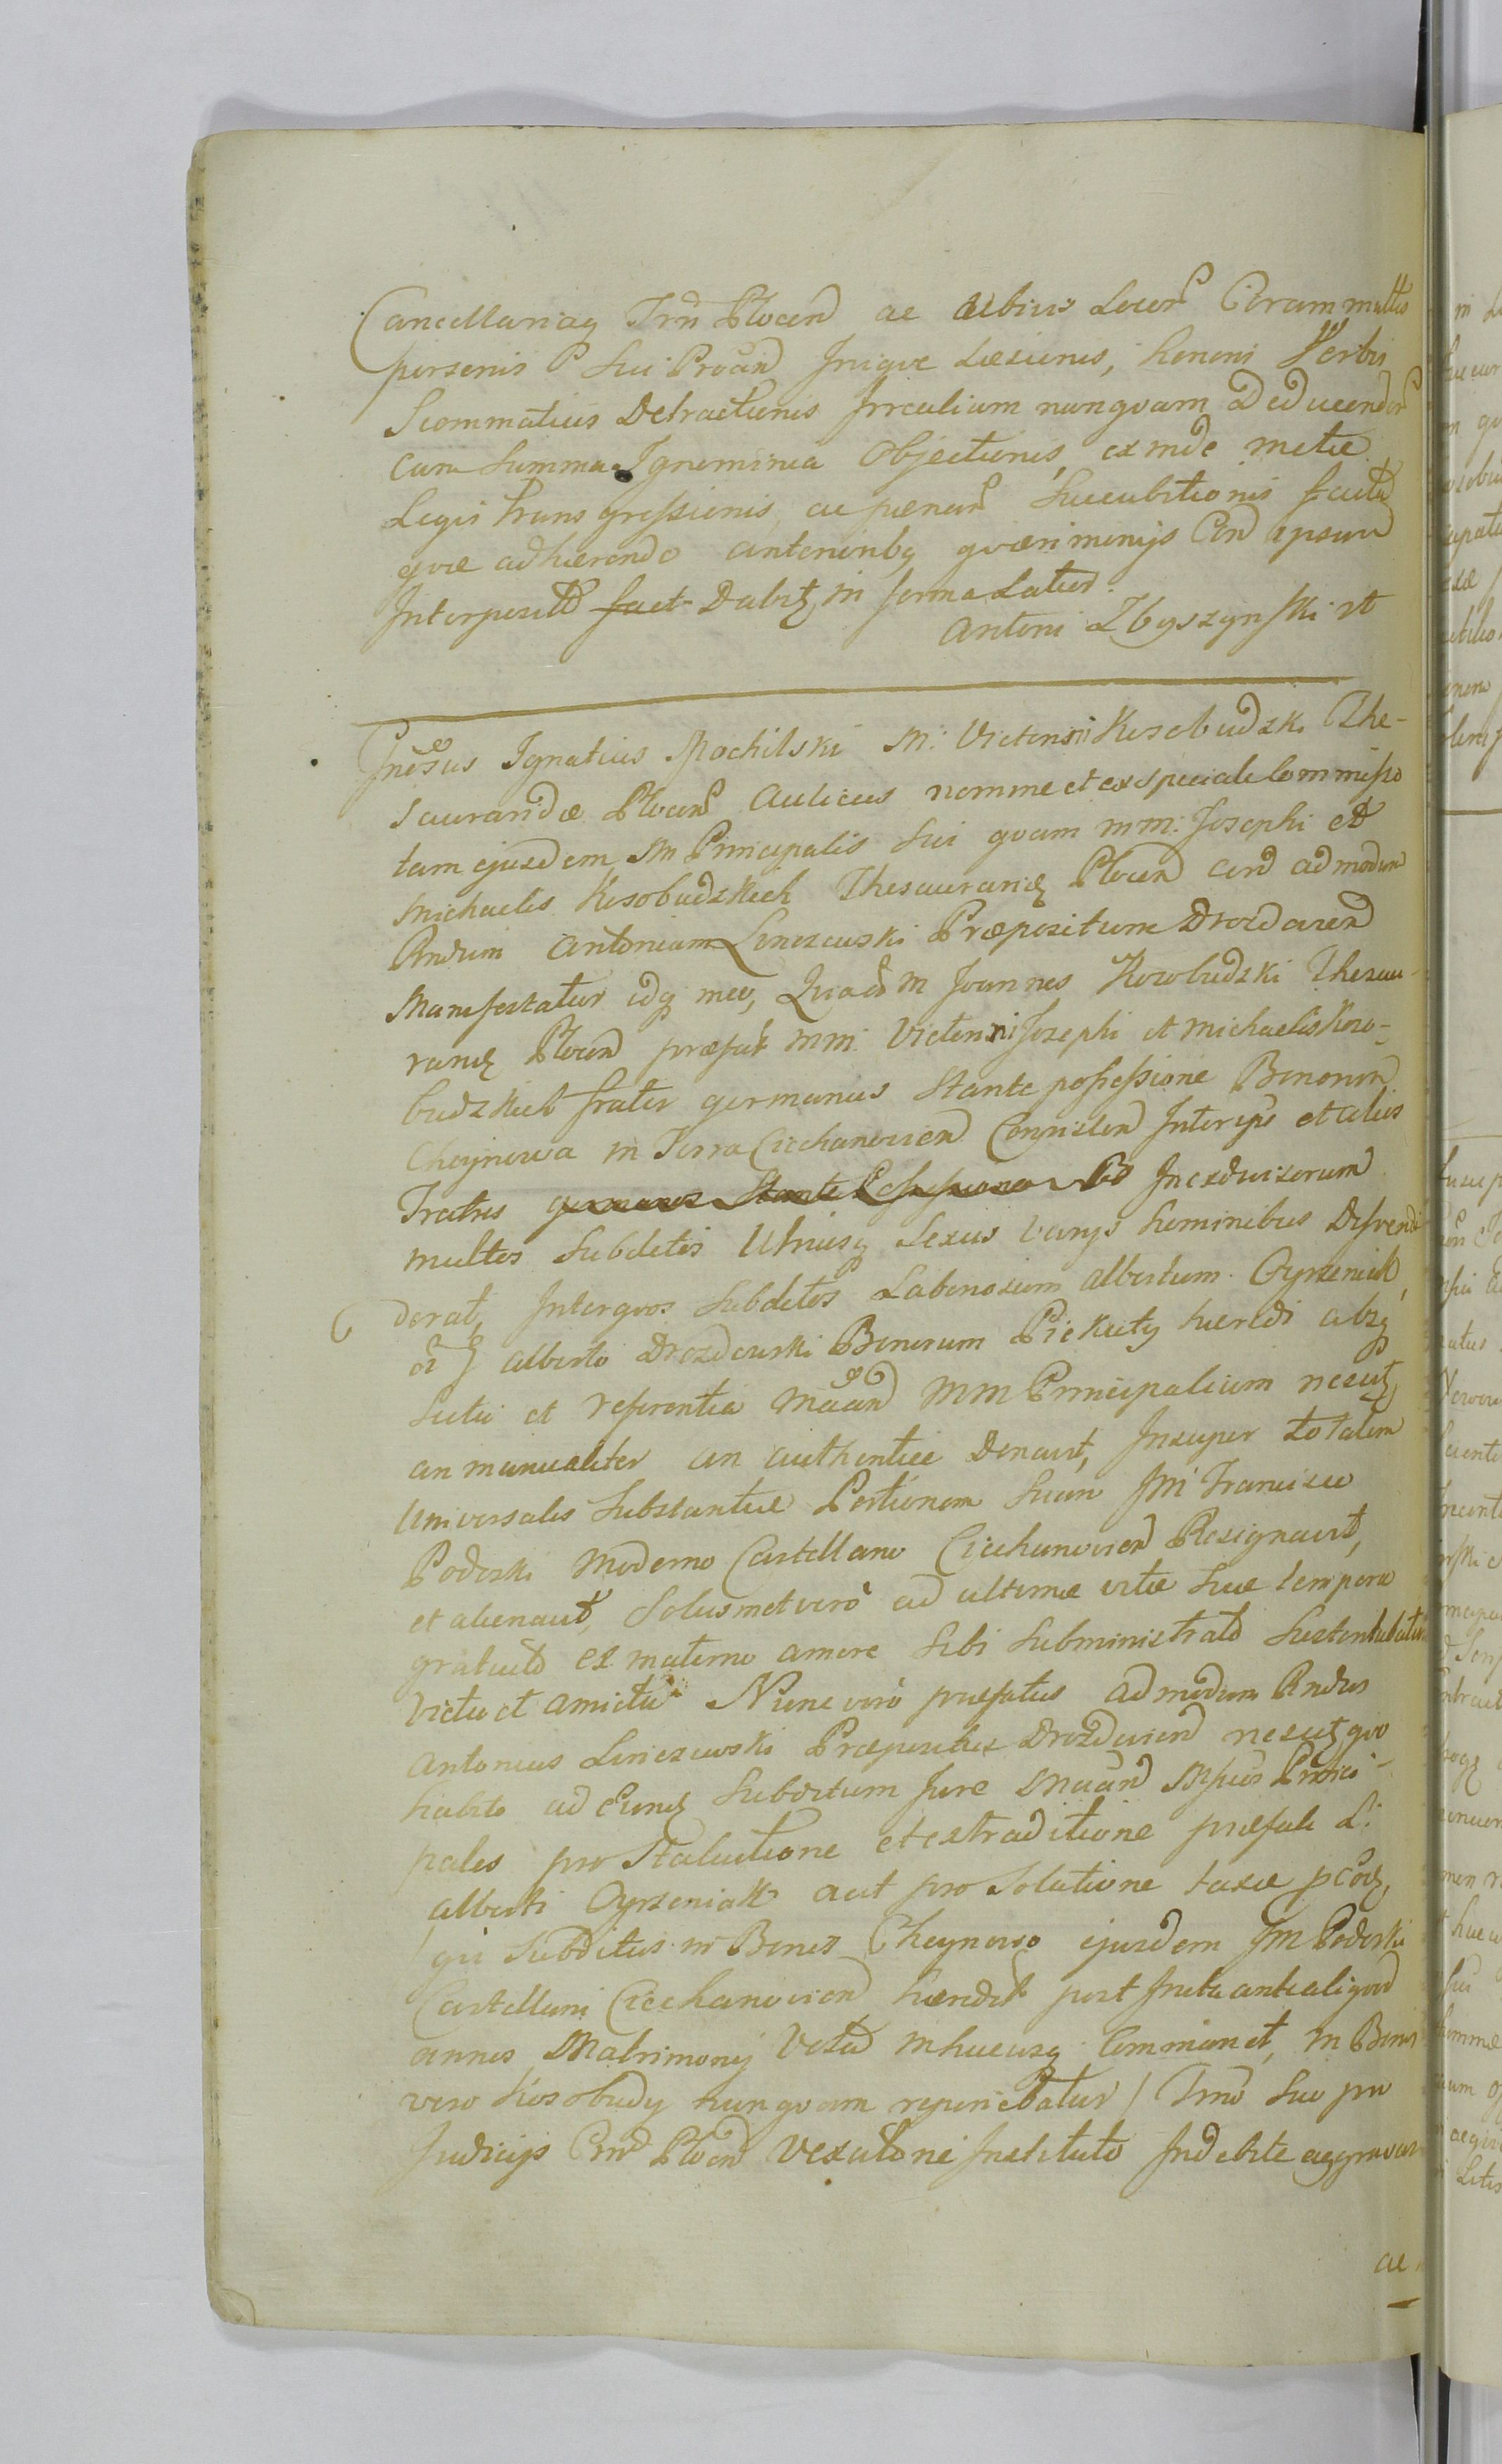 Cancellariaq Trn Plocen ac alibius Locor Coram multis
personis P Sui Procan Inique Læsionis, honori Verbis
Scommaticis Detractionis Irrealium nunquam Deducendor
cum Summa Ignominia Objectionis, exinde metu
Legis transgressionis, ac pænar Succubitionis facta
quæ adhærendo anterioribq quærimonijs Con ipsum
Interposit fact Dabit in forma Latior
Antoni Zbyszynski rt
Gnosus Ignatius Mochilski M: Victorini Kosobudzki The-
sauraridæ Plocen Aulicus nomine et ex speciali Commisso
tam ejusdem M Principalis Sui quam mm: Josephi et
Michaelis Kosobudzkich Thesaurariq Plocen con admodum
Rndum Antonium Lenczewski Præpositum Drozdovien
Manifestatur idq meo, Quia M Joannes Kosobudzki Thesau-
rariq Plocen præfat mm Victorini Josephi et Michaelis Koso-
budzkich frater germanus Stante possessione Bonorum
Choynowa in Terra Ciechanovien Consisten Inter ipso et alios
Fratres germanos Stante Possessione Bo Inexdivisorum
multos Subditos Utriusq Sexus varijs hominibus Disvendi
derat, Interquos Subditos Laboriosum Albertum Oyrzeniak
Alberto Drozdowski Bonorum Piekuty hæredi absq
Scitu et referentia Maan MM Principalium nescit
an manualiter an authentice Donavit, Insuper totalem
Universalis Substantiæ Portionem Suam Jm Francisco
Podoski Moderno Castellano Ciechanovien Resignavit,
et alienavit, Solusmet vero ad ultima vitæ suæ tempora
gratuito ex materno amore Sibi Subministrato Sustentabatur
victu et amictu Nunc vero præfatus admodum Rndus
Antonius Lenczewski Præpositus Drozdovien nescit quo
habito ad Eund Subditum Jure Maan Mfcos Princi-
pales pro Statutione et extraditione præfati L:
Alberti Oyrzeniak aut pro Solutione taxæ pcod,
/qui Subditus in Bonis Choynowo ejusdem Jm Podoski
Castellani Ciechanovien hæredit post Inita ante aliquod
annos Matrimonij Vota inhucusq Commanet, in Bonis
vero Kosobudy nunquam reperiebatur/ Trno Suo pro
Judicijs Crn Plocen Vexatone Instituto Indebite aggravar
ac